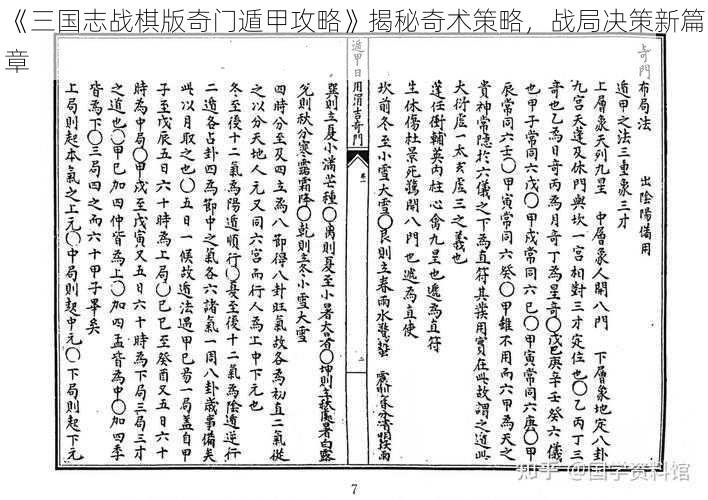 《三国志战棋版奇门遁甲攻略》揭秘奇术策略，战局决策新篇
章
奇門
布局法 出陰陽備用
遁甲之法三重象三才
上層象天列九星 中層象人開八門 下層象地定八卦
九宮天蓬及休門與坎一宮相對三才定位也〇乙丙丁三
奇也乙為日奇丙為月奇丁為星奇〇戊己庚辛壬癸六儀
也甲子常同六戊〇甲戌常同六己〇甲寅常同六庚〇甲
辰常同六壬〇甲寅常同六癸〇甲雖不用而六甲為天之
貴神常隱於六儀之下為直符其發用實在此故謂之遁此
大衍虛一太玄虛三之義也
蓬任衝輔英芮柱心禽九星也遞為直符
生休傷杜景死驚開八門也遞為直使
坎前冬至小雪大雪〇艮則立春雨水驚蟄 震則春分清明穀雨
遁甲日用涓吉奇門 卷一 二
巽則立夏小滿芒種〇离則夏至小暑大暑〇坤則立秋處暑白露
兌則秋分寒露霜降〇乾則立冬小雪大雪
四時分至及四立為八節得八卦旺氣故各為初直二氣從
之以分天地人元又同六宮而行人為上中下元也
冬至後十二氣為陽遁順行〇夏至後十二氣為陰遁逆行
二遁各占卦四為節中之氣各六諸氣一周八卦歲事備矣
此以月取之也〇五日一候故遁法遇甲己易一局蓋自甲
子至戊辰五日六十時為上局〇己巳至癸酉又五日六十
時為中局〇甲戌至戊寅又五日六十時為下局三局三才
之道也〇甲己加四仲皆為上〇加四孟皆為中〇加四季
皆為下〇三局四之而六十甲子畢矣
上局則起本氣之上元〇中局則起中元〇下局則起下元
7
知乎 @国学资料馆